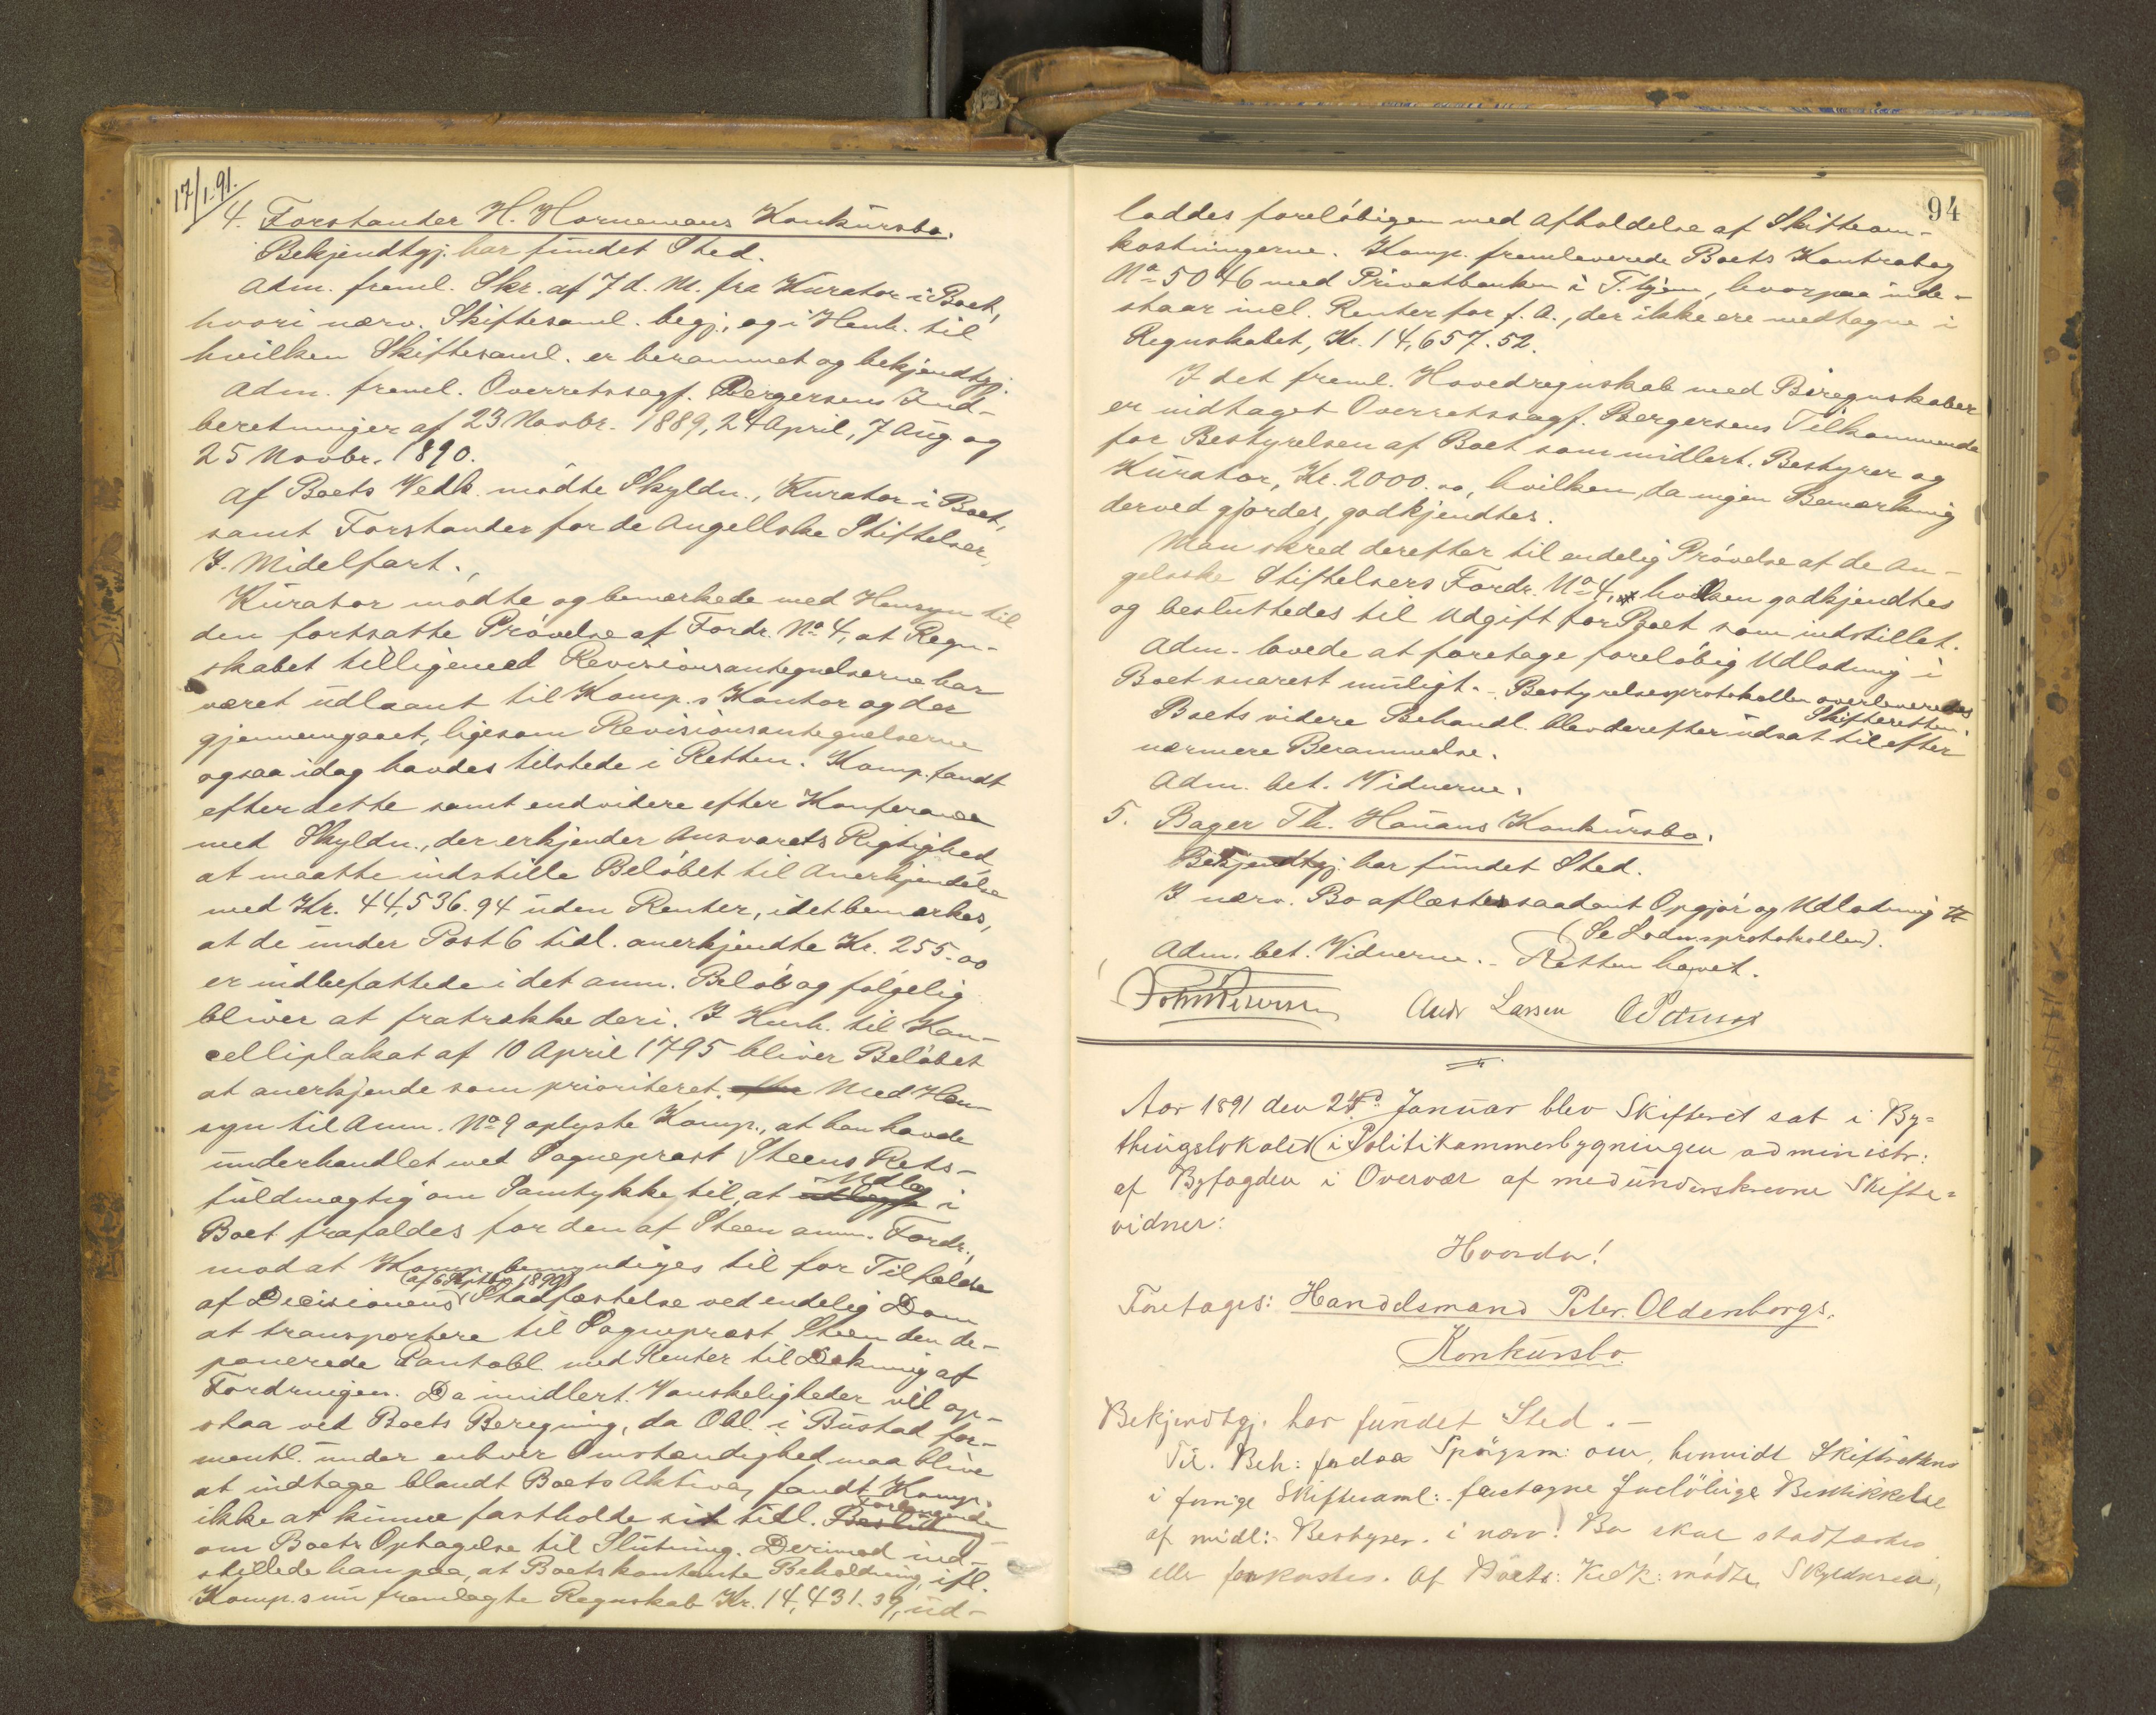 17/1.91.
4. Forstander H. Hornemans Konkursbo.
Bekjendtgj. har fundet Sted.
Adm. freml. Skr. af 7 d. M. fra Kurator i Boet,
hvori nærv. Skiftesaml. begj., og i Henh. til
hvilken Skiftesaml. er berammet og bekjendtgj.
Adm. freml. Overretssagf. Bergersens Ind-
beretninger af 23 Novbr. 1889, 24 April, 7 Aug. og
25 Novbr. 1890.
Af Boets Vedk. mödte Skyldn., Kurator i Boet,
samt Forstander for de Angellske Stiftelser,
J. Midelfart.
Kurator mödte og bemærkede med Hensyn til
den fortsatte Prövelse af Fordr. No 4, at Regn-
skabet tilligemed Revisionsantegnelserne har
været udlaant til Komp.s Kontor og der
gjennemgaaet, ligesom Revisionsantegnelserne
ogsaa idag havdes tilstede i Retten. Komp. fandt
efter dette samt endvidere efter Konferance
med Skyldn., der erkjender Ansvarets Rigtighed,
at maatte indstille Belöbet til Anerkjendelse
med Kr. 44,536.94 uden Renter, idet bemærkes,
at de under Post 6 tidl. anerkjendte Kr. 255.00
er indbefattede i det anm. Belöb og fölgelig
bliver at fratrække deri. I Henh. til Kan-
celliplakat af 10 April 1795 bliver Belöbet
at anerkjende som prioriteret. Med Hen-
syn til Anm. No 9 oplyste Komp., at han havde
underhandlet med Sogneprest Steens Rets-
fuldmægtig om Samtykke til, at udlægge Udlæg i
Boet frafaldes for den af Steen anm. Fordr.,
mod at Komp. bemyndiges til for Tilfælde
af Decisionens (af 6 Septbr. 1890) Stadfæstelse ved endelig Dom
at transportere til Sogneprest Steen den de-
ponerede Pantobl. med Renter til Dækning af
Fordringen. Da imidlert. Vanskeligheder vil op-
staa ved Boets Beregning, da Obl. i Bustad for-
mentl. under enhver Omstændighed maa blive
at indtage blandt Boets Aktiva, fandt Komp.
ikke at kunne fastholde sit tidl. Beslutning Forlangende
om Boets Optagelse til Slutning. Derimod ind-
stillede han paa, at Boets kontante Beholdning, ifl.
Komp.s nu fremlagte Regnskab Kr. 14,431.39, ud-
94
loddes forelöbigen med Afholdelse af Skifteom-
kostningerne. Komp. fremleverede Boets Kontrabog
No 5046 med Privatbanken i T.hjem, hvorpaa inde-
staar incl. Renter for f. A., der ikke ere medtagne i
Regnskabet, Kr. 14,657.52.
I det freml. Hovedregnskab med Biregnskaber
er indtaget Overretssagf. Bergersens Tilkommende
for Bestyrelsen af Boet som midlert. Bestyrer og
Kurator, Kr. 2000.00, hvilken, da ingen Bemærkning
derved gjordes, godkjendtes.
Man skred derefter til endelig Prövelse af de An-
gelske Stiftelsers Fordr. No 4, hvilken godkjendtes
og besluttedes til Udgift for Boet som indstillet.
Adm. lovede at foretage forelöbig Udlodning i
Boet snarest muligt. - Bestyrelsesprotokollen overleveredes
Skifteretten.
Boets videre Behandl. blev derefter udsat til efter
nærmere Berammelse.
Adm. bet. Vidnerne.
5. Bager Th. Hauans Konkursbo.
Bekjendtgj. har fundet Sted.
I nærv. Bo aflæstes saadant Opgjör og Udlodning #
(Se Lodn.sprotokollen).
Adm. bet. Vidnerne. - Retten hævet.
Andr Larsen
Aar 1891 den 24de Januar blev Skifteret sat i By-
thingslokalet (i Politikammerbygningen administr:
af Byfogden i Overvær af medunderskrevne Skifte-
vidner:
Hvorda!
Foretages: Handelsmand Peter Oldenborgs.
Konkursbo
Bekjendtgj. har fundet Sted. -
Til. Beh: Spörgsm: om, hvorvidt Skifterettens
i forrige Skiftesaml: foretagne forelöbige Beskikkelse
af midl: Bestyrer i nærv: Bo skal stadfæstes
eller forkastes. Af Boets: Vedk: mödte Skyldneren,